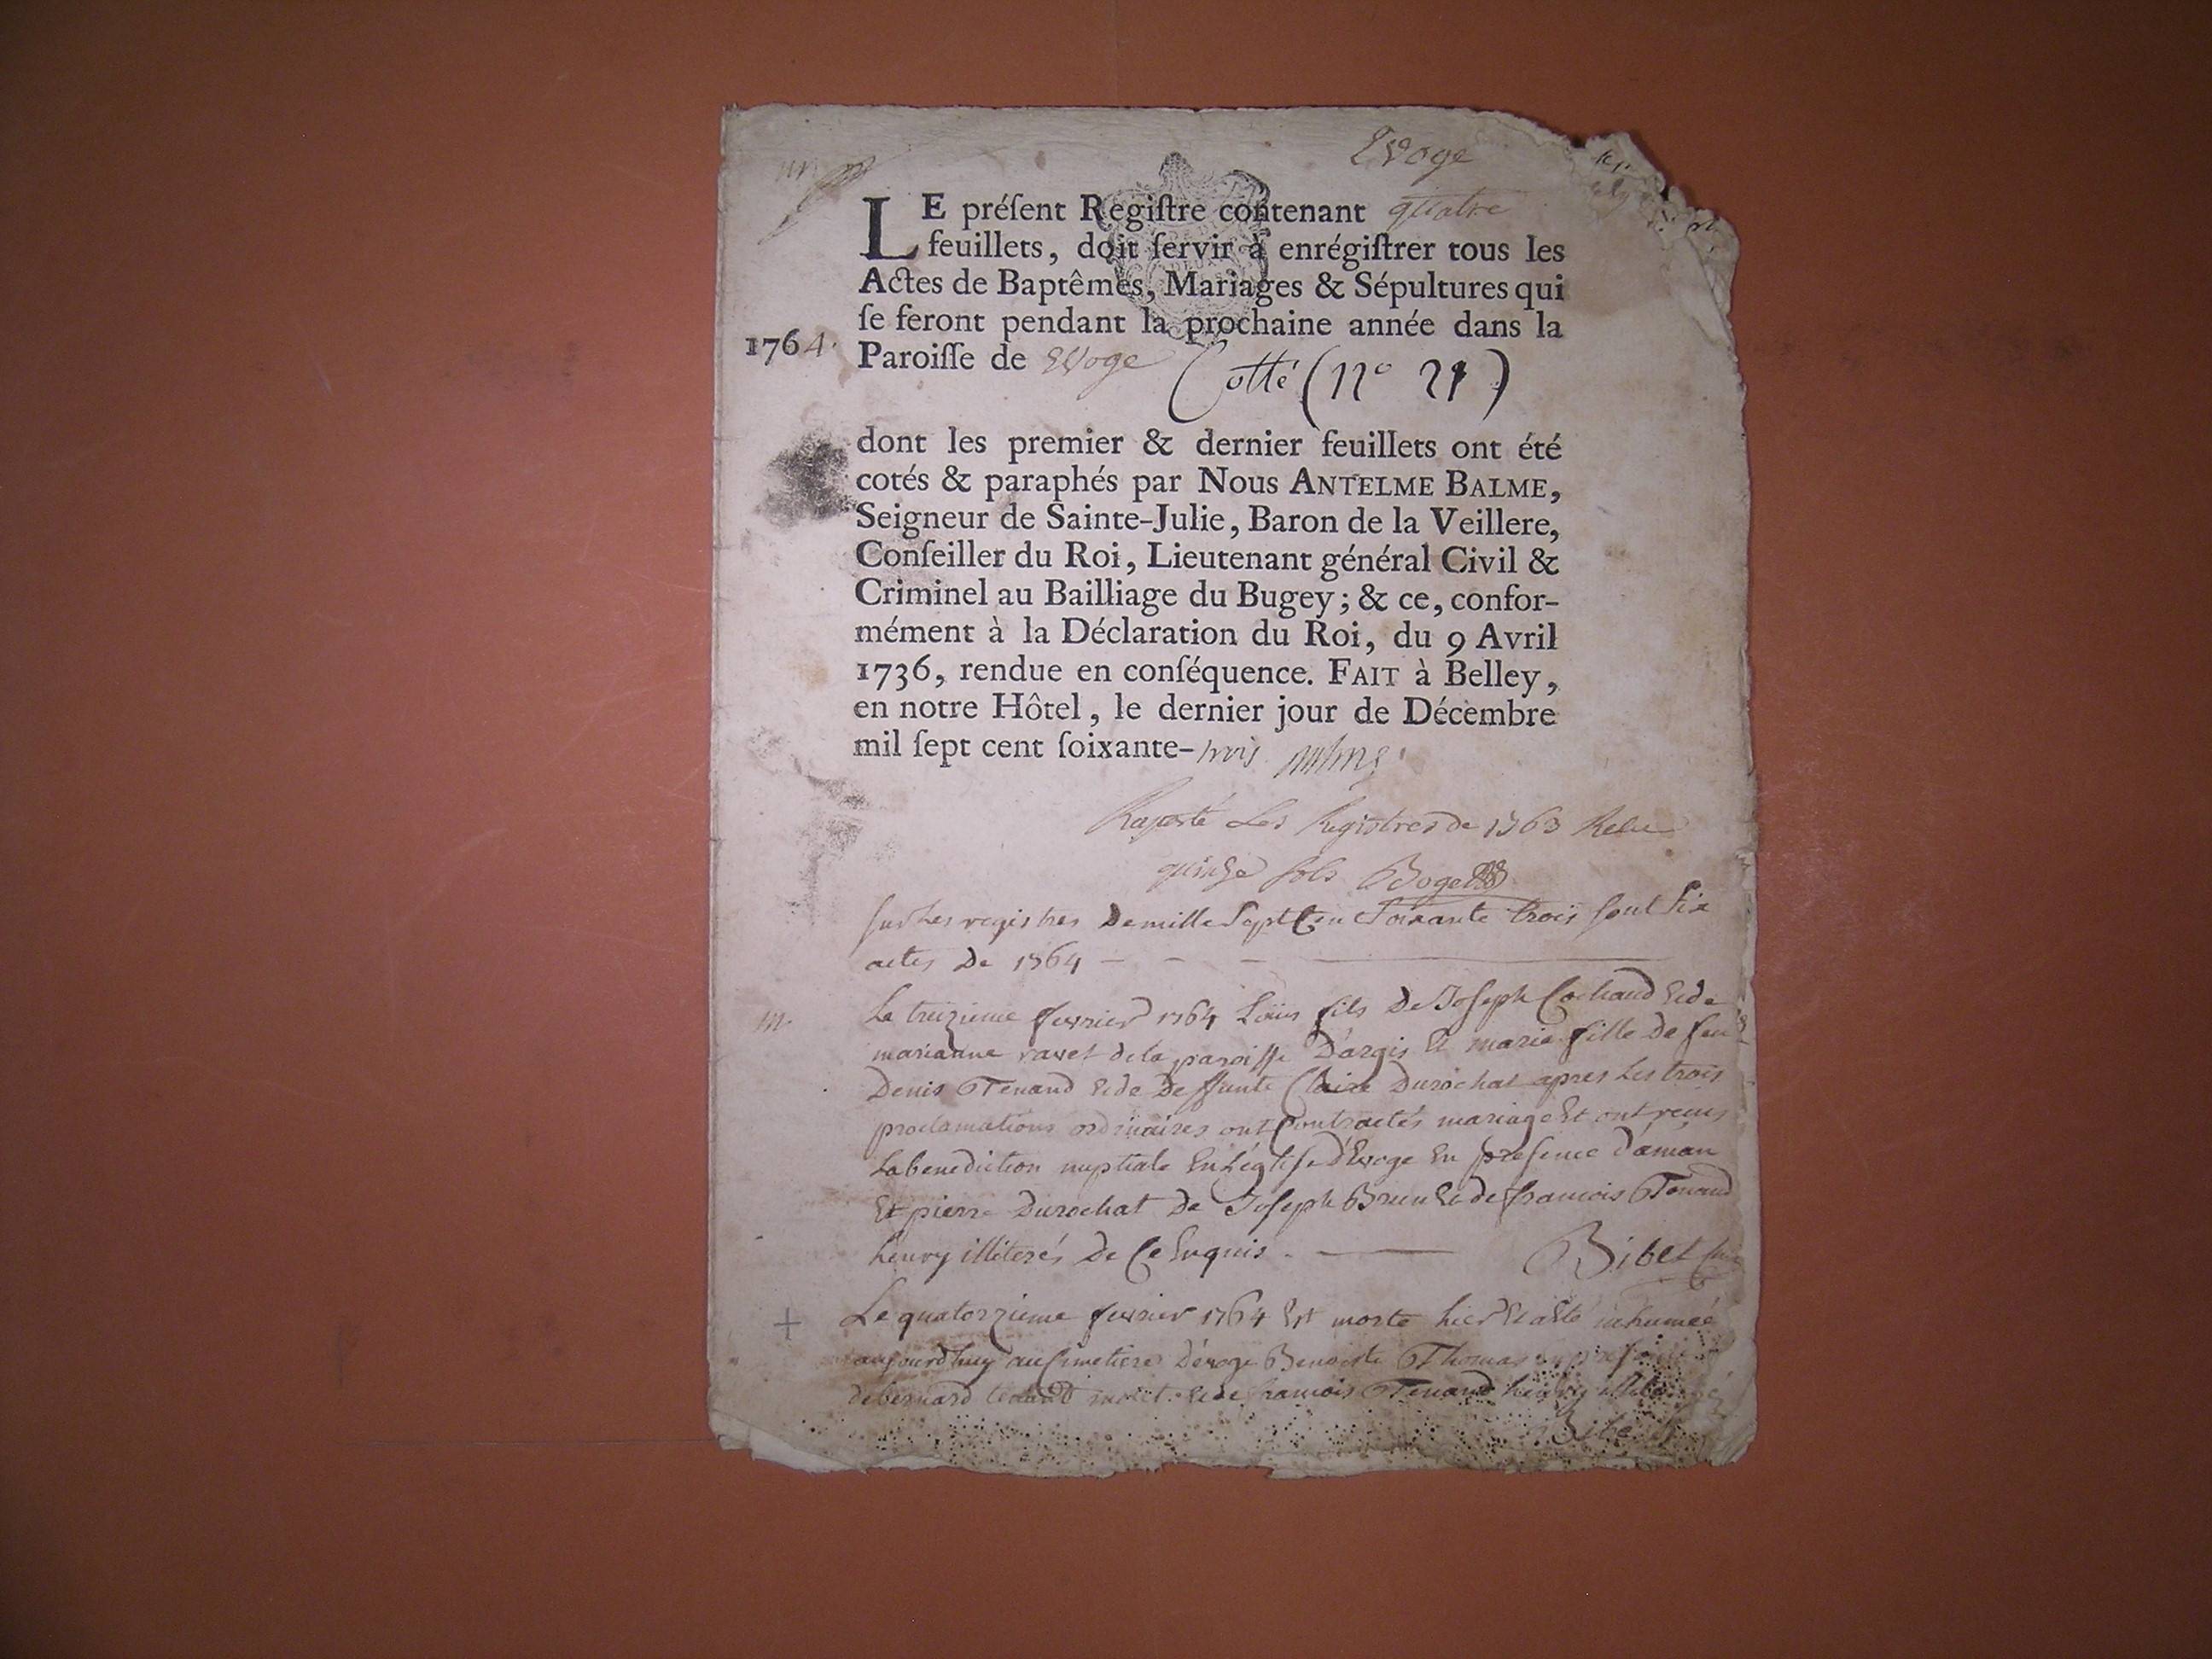 Evoge
LE préſent Regiſtre contenant quatre
feuillets, doit ſervir à enrégiſtrer tous les
Actes de Baptêmes, Mariages & Sépultures qui
ſe feront pendant la prochaine année dans la
1764. Paroiſſe de Evoge Cotté (n° 21)
dont les premier & dernier feuillets ont été
cotés & paraphés par Nous ANTELME BALME,
Seigneur de Sainte-Julie, Baron de la Veillere,
Conſeiller du Roi, Lieutenant général Civil &
Criminel au Bailliage du Bugey; & ce, confor-
mément à la Déclaration du Roi, du 9 Avril
1736, rendue en conſéquence. FAIT à Belley,
en notre Hôtel, le dernier jour de Décembre
mil ſept cent ſoixante-trois
Raporté Les Registres de 1763
quinze sols
sur les registres De mille Sept Cen Soixante trois sont Six
actes De 1764
m. Le treizieme fevrier 1764 Loüis fils De Joseph Cochaud Et de
marianne ravet de la paroisse D'argis Et marie fille De feu
Denis Tenand Et de Deffunte Claire Durochat apres Les trois
proclamations ordinaires ont Contractés mariage Et ont recus
La benediction nuptiale En L'église d'Evoge En presence d'aman
Et pierre Durochat De Joseph Brun Et de francois Tenand
henry illiterés De Ce Enquis. Bibet
+ Le quatorzieme fevrier 1764 Est morte hier Et a Eté inhumée
aujourd'huy au Cimetiere d'evoge Benoite Thomas en presence
de bernard Et de francois Tenand henry
Bibet